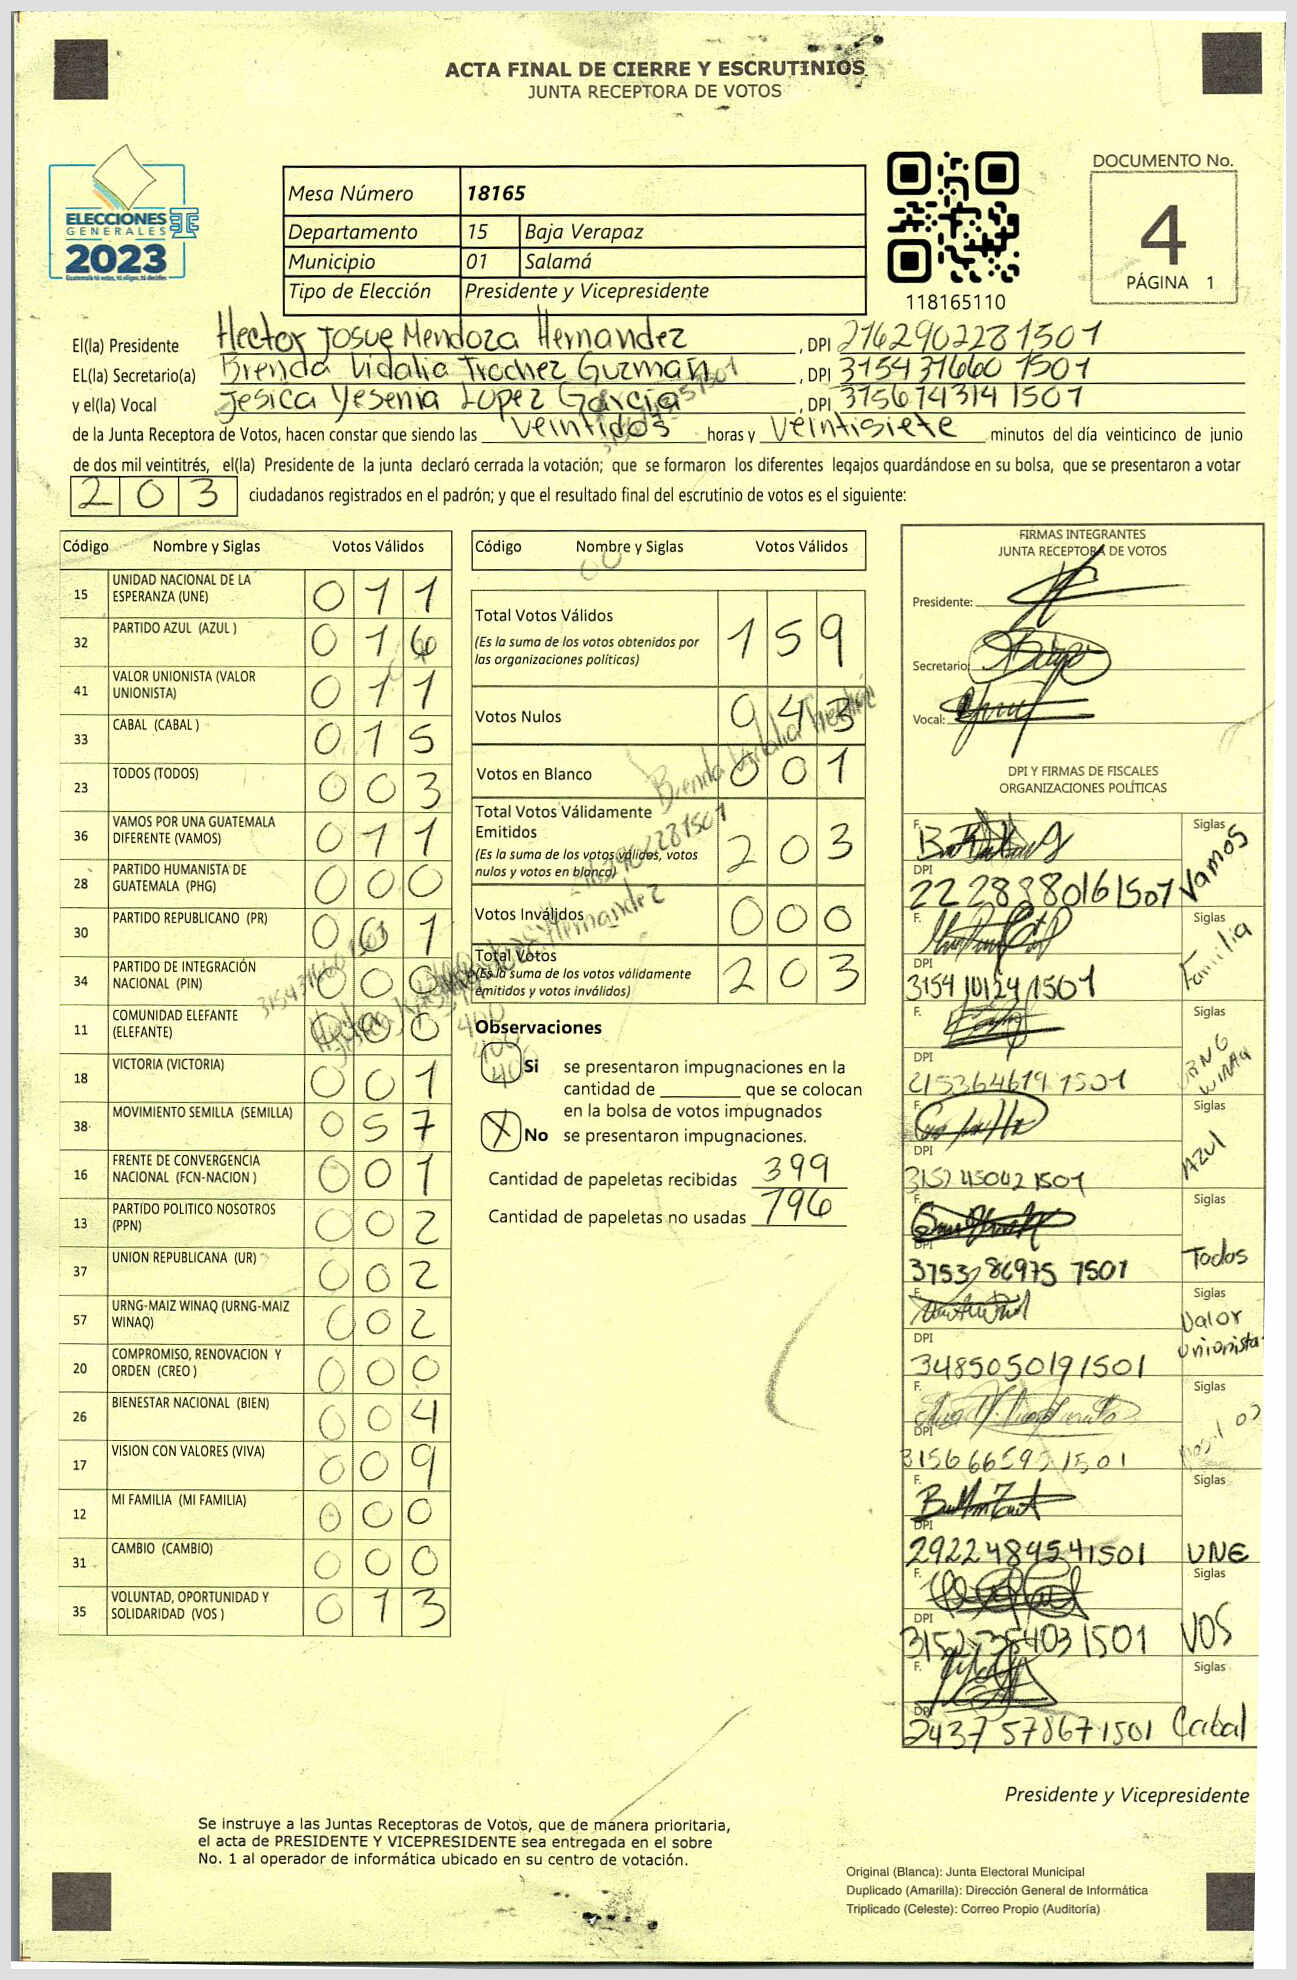 ACTA FINAL DE CIERRE Y ESCRUTINIOS
JUNTA RECEPTORA DE VOTOS
ELECCIONES
GENERALES
2023
Guatemala tú votas, tú eliges, tú decides
Mesa Número 18165
Departamento 15 Baja Verapaz
Municipio 01 Salamá
Tipo de Elección Presidente y Vicepresidente
118165110
DOCUMENTO No.
4
PÁGINA 1
El(la) Presidente Hector Josue Mendoza Hernandez, DPI 2162902281501
EL(la) Secretario(a) Brenda Vidalia Trochez Guzman, DPI 315431660 1501
y el(la) Vocal Jesica Yesenia Lopez Garcia, DPI 3756743141501
de la Junta Receptora de Votos, hacen constar que siendo las veintidos horas y veintisiete minutos del día veinticinco de junio
de dos mil veintitrés, el(la) Presidente de la junta declaró cerrada la votación; que se formaron los diferentes legajos guardándose en su bolsa, que se presentaron a votar
203 ciudadanos registrados en el padrón; y que el resultado final del escrutinio de votos es el siguiente:
Código Nombre y Siglas Votos Válidos
15 UNIDAD NACIONAL DE LA ESPERANZA (UNE) 011
32 PARTIDO AZUL (AZUL ) 016
41 VALOR UNIONISTA (VALOR UNIONISTA) 011
33 CABAL (CABAL ) 015
23 TODOS (TODOS) 003
36 VAMOS POR UNA GUATEMALA DIFERENTE (VAMOS) 011
28 PARTIDO HUMANISTA DE GUATEMALA (PHG) 000
30 PARTIDO REPUBLICANO (PR) 001
34 PARTIDO DE INTEGRACIÓN NACIONAL (PIN) 000
11 COMUNIDAD ELEFANTE (ELEFANTE) 000
18 VICTORIA (VICTORIA) 001
38 MOVIMIENTO SEMILLA (SEMILLA) 057
16 FRENTE DE CONVERGENCIA NACIONAL (FCN-NACION ) 001
13 PARTIDO POLITICO NOSOTROS (PPN) 002
37 UNION REPUBLICANA (UR) 002
57 URNG-MAIZ WINAQ (URNG-MAIZ WINAQ) 002
20 COMPROMISO, RENOVACION Y ORDEN (CREO ) 000
26 BIENESTAR NACIONAL (BIEN) 004
17 VISION CON VALORES (VIVA) 009
12 MI FAMILIA (MI FAMILIA) 000
31 CAMBIO (CAMBIO) 000
35 VOLUNTAD, OPORTUNIDAD Y SOLIDARIDAD (VOS ) 013
Código Nombre y Siglas Votos Válidos
Total Votos Válidos 159
(Es la suma de los votos obtenidos por
las organizaciones políticas)
Votos Nulos 043
Votos en Blanco 001
Total Votos Válidamente
Emitidos 203
(Es la suma de los votos válidos, votos
nulos y votos en blanco)
Votos Inválidos 000
Total Votos 203
(Es la suma de los votos válidamente
emitidos y votos inválidos)
Observaciones
Si se presentaron impugnaciones en la
cantidad de que se colocan
en la bolsa de votos impugnados
X No se presentaron impugnaciones.
Cantidad de papeletas recibidas 399
Cantidad de papeletas no usadas 796
FIRMAS INTEGRANTES
JUNTA RECEPTORA DE VOTOS
Presidente:
Secretario:
Vocal:
DPI Y FIRMAS DE FISCALES
ORGANIZACIONES POLÍTICAS
F. Siglas Vamos
DPI 2228880161507
F. Siglas Familia
DPI 3154101241501
F. Siglas WINAQ
DPI 2153646191501
F. Siglas AZUL
DPI
F. Siglas Todos
DPI 3753286975 7501
F. Siglas Valor Unionista
DPI 3485050191501
F. Siglas
DPI 3156665951501
F. Siglas UNE
DPI 2922484541501
F. Siglas VOS
DPI 3152354031501
F. Siglas Cabal
DPI 2437578671501
Presidente y Vicepresidente
Se instruye a las Juntas Receptoras de Votos, que de manera prioritaria,
el acta de PRESIDENTE Y VICEPRESIDENTE sea entregada en el sobre
No. 1 al operador de informática ubicado en su centro de votación.
Original (Blanca): Junta Electoral Municipal
Duplicado (Amarilla): Dirección General de Informática
Triplicado (Celeste): Correo Propio (Auditoría)